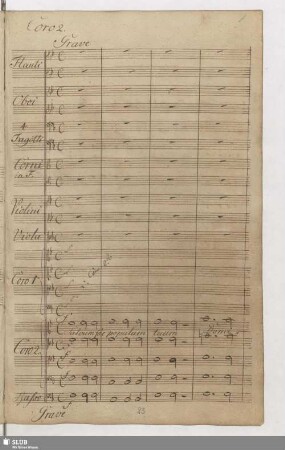 Coro 2.
Grave
Flauti
Oboi
Fagotti
Corni
Violini
Viola
Coro 1
Coro 2.
Salvum fac populum tuum
Basso
Grave
SLUB
Wir führen Wissen.